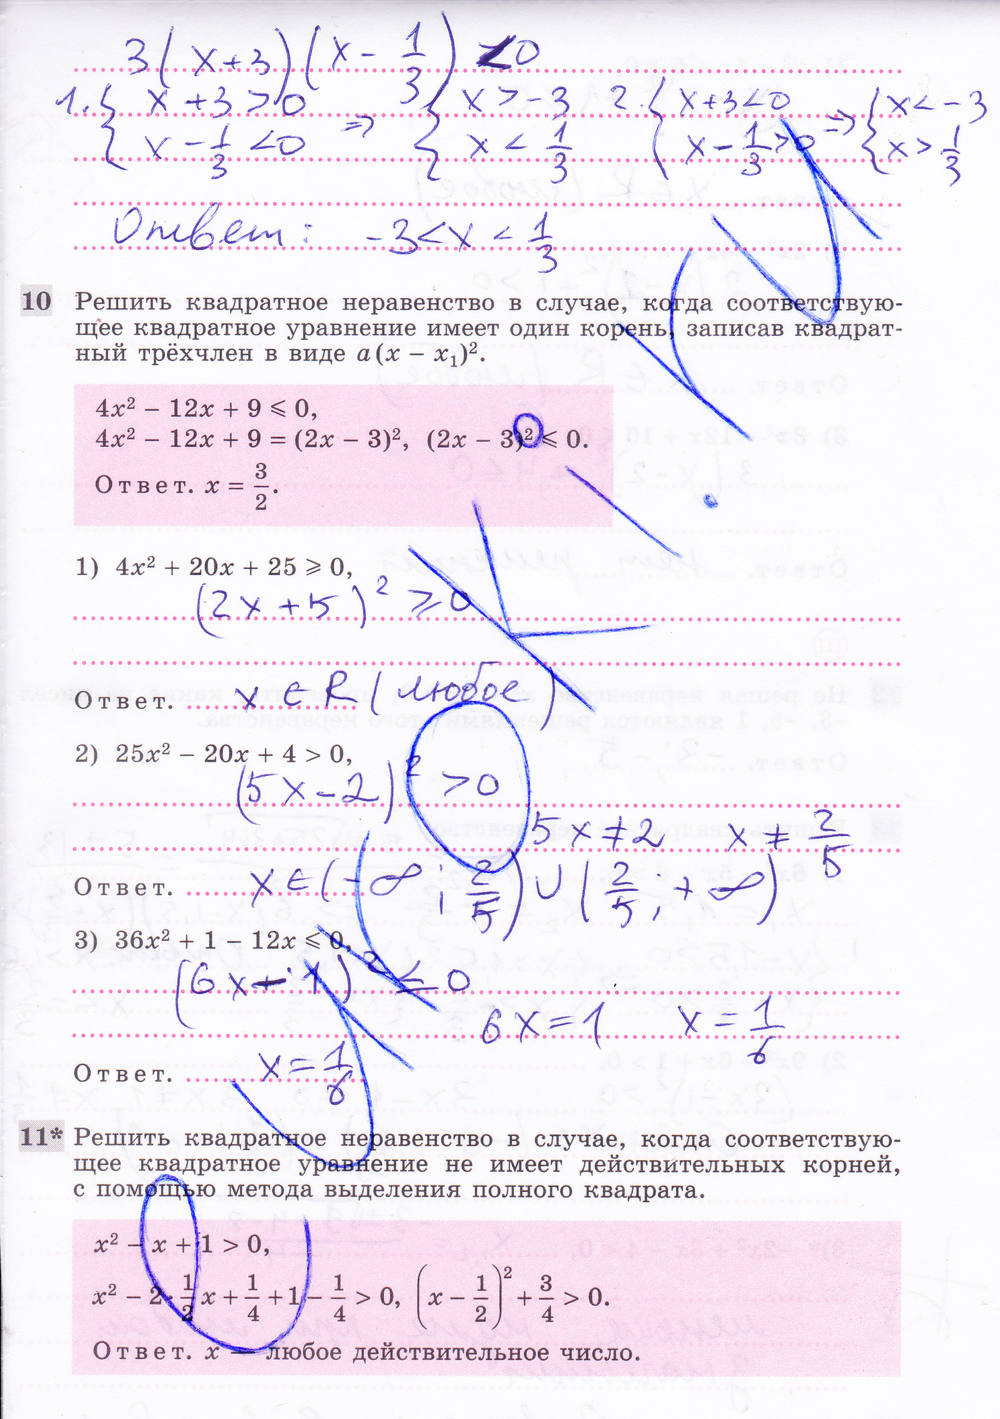 3(x+3)(x - 1/3) < 0
1. { x+3>0 => { x>-3 2. { x+3<0 => { x<-3
{ x - 1/3 <0 { x < 1/3 { x - 1/3 >0 { x > 1/3
Ответ: -3<x< 1/3
10 Решить квадратное неравенство в случае, когда соответствую-
щее квадратное уравнение имеет один корень, записав квадрат-
ный трёхчлен в виде a(x − x₁)².
4x² − 12x + 9 ⩽ 0,
4x² − 12x + 9 = (2x − 3)², (2x − 3)² ⩽ 0.
Ответ. x = 3/2.
1) 4x² + 20x + 25 ⩾ 0,
(2x+5)² ⩾ 0
Ответ. x ∈ R (любое)
2) 25x² − 20x + 4 > 0,
(5x-2)² >0
5x≠2 x ≠ 2/5
Ответ. x∈(-∞, 2/5)∪(2/5, +∞)
3) 36x² + 1 − 12x ⩽ 0,
(6x - 1)² ≤ 0
6x=1 x= 1/6
Ответ. x= 1/6
11* Решить квадратное неравенство в случае, когда соответствую-
щее квадратное уравнение не имеет действительных корней,
с помощью метода выделения полного квадрата.
x² − x + 1 > 0,
x² − 2 · 1/2 x + 1/4 + 1 − 1/4 > 0, (x − 1/2)² + 3/4 > 0.
Ответ. x — любое действительное число.